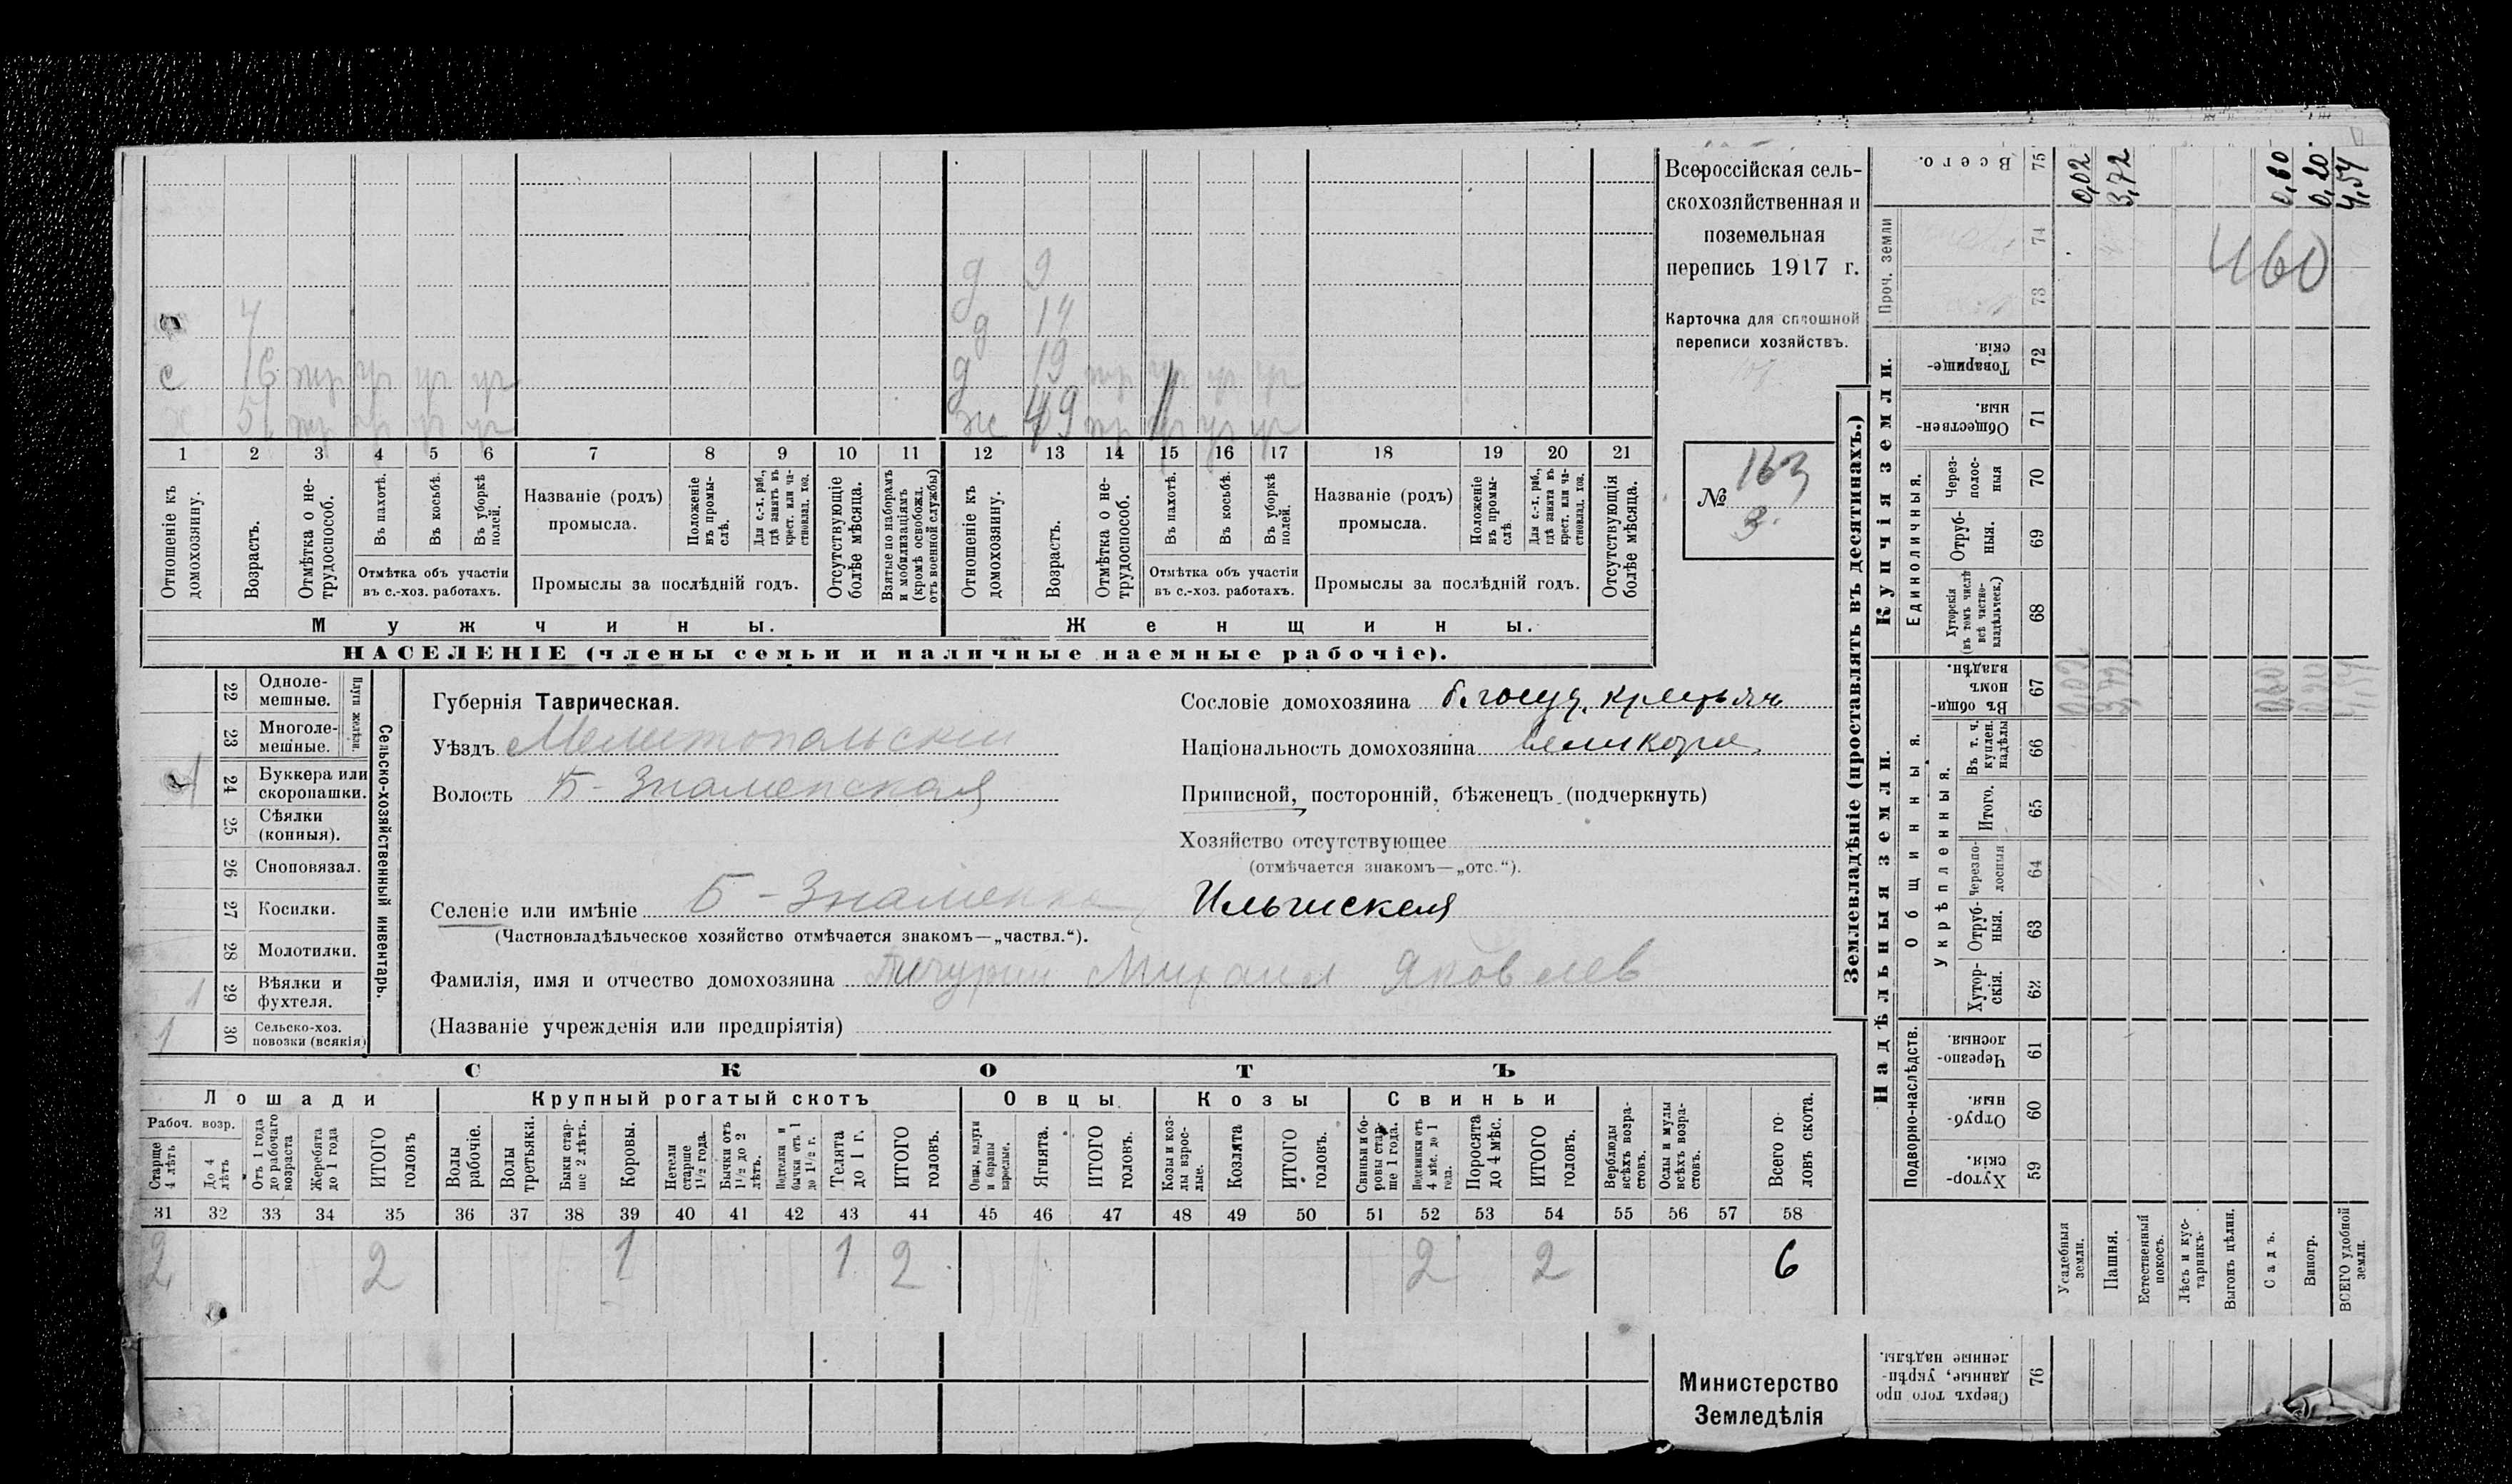 д 9
4 д 14
с 16 тр уч уч уч д 19 тр уч уч уч
х 51 тр уч уч уч ж 49 тр уч уч уч
1 2 3 4 5 6 7 8 9 10 11 12 13 14 15 16 17 18 19 20 21
Отношеніе къ домохозяину.
Возрастъ.
Отмѣтка о не-
трудоспособ.
Въ пахотѣ.
Въ косьбѣ.
Въ уборкѣ
полей.
Отмѣтка объ участіи
въ с.-хоз. работахъ.
Названіе (родъ)
промысла.
Положеніе
въ промы-
слѣ.
Для с.-х. раб.,
гдѣ занятъ въ
крест. или ча-
стновлад. хоз.
Промыслы за послѣдній годъ.
Отсутствующіе
болѣе мѣсяца.
Взятые по наборамъ
и мобилизаціямъ
(кромѣ освобожд.
отъ военной службы)
Отношеніе къ
домохозяину.
Возрастъ.
Отмѣтка о не-
трудоспособ.
Въ пахотѣ.
Въ косьбѣ.
Въ уборкѣ
полей.
Отмѣтка объ участіи
въ с.-хоз. работахъ.
Названіе (родъ)
промысла.
Положеніе
въ промы-
слѣ.
Для с.-х. раб.,
гдѣ занята въ
крест. или ча-
стновлад. хоз.
Промыслы за послѣдній годъ.
Отсутствующія
болѣе мѣсяца.
Мужчины. Женщины.
НАСЕЛЕНІЕ (члены семьи и наличные наемные рабочіе).
Всероссійская сель-
скохозяйственная и
поземельная
перепись 1917 г.
Карточка для сплошной
переписи хозяйствъ.
№ 163
3.
22 Одноле-
мешные.
23 Многоле-
мешные.
Плуги желѣзн.
1 24 Буккера или
скоропашки.
25 Сѣялки
(конныя).
26 Сноповязал.
27 Косилки.
28 Молотилки.
1 29 Вѣялки и
фухтеля.
1 30 Сельско-хоз.
повозки (всякія)
Сельско-хозяйственный инвентарь.
Губернія Таврическая.
Уѣздъ Мелитопольскій
Волость Б-Знаменская
Селеніе или имѣніе Б-Знаменка
(Частновладѣльческое хозяйство отмѣчается знакомъ—„частвл.“).
Фамилія, имя и отчество домохозяина Пичурин Михаил Яковлев
(Названіе учрежденія или предпріятія)
Сословіе домохозяина б. госуд. крестьян
Національность домохозяина великорос.
Приписной, посторонній, бѣженецъ (подчеркнуть)
Хозяйство отсутствующее
(отмѣчается знакомъ—„отс.“).
Ильинская
СКОТЪ
Лошади Крупный рогатый скотъ Овцы Козы Свиньи
Рабоч. возр.
Старще
4 лѣтъ
До 4
лѣтъ
Отъ 1 года
до рабочаго
возраста
Жеребята
до 1 года
ИТОГО
головъ
Волы
рабочіе.
Волы
третьяки.
Быки стар-
ше 2 лѣтъ.
Коровы.
Нетели
старше
1½ года.
Бычки отъ
1½ до 2
лѣтъ.
Нетелки и
бычки отъ 1
до 1½ г.
Телята
до 1 г.
ИТОГО
головъ.
Овцы, валухи
и бараны
взрослые.
Ягнята.
ИТОГО
головъ.
Козы и коз-
лы взрос-
лые.
Козлята
ИТОГО
головъ.
Свиньи и бо-
ровы стар-
ше 1 года.
Подсвинки отъ
4 мѣс. до 1
года.
Поросята
до 4 мѣс.
ИТОГО
головъ.
Верблюды
всѣхъ возра-
стовъ.
Ослы и мулы
всѣхъ возра-
стовъ.
Всего го-
ловъ скота.
31 32 33 34 35 36 37 38 39 40 41 42 43 44 45 46 47 48 49 50 51 52 53 54 55 56 57 58
2 2 1 1 2 2 2 6
Министерство
Земледѣлія
Землевладѣніе (проставлять въ десятинахъ.)
Всего. 75 0,02 3,72 0,60 0,20 4,54
Проч. земли 74 73
460
Купчія земли.
Товарище-
скія. 72
Обществен-
ныя. 71
Единоличныя.
Через-
полос-
ныя 70
Отруб-
ныя. 69
Хуторскія
(въ томъ числѣ
всѣ частно-
владѣльческ.) 68
Надѣльныя земли.
Общинныя.
Въ общи-
номъ
владѣн. 67 0,02 3,72 0,60 0,20 4,54
Укрѣпленныя.
Въ т. ч.
куплен.
надѣлы 66
Итого. 65
Черезпо-
лосныя 64
Отруб-
ныя. 63
Хутор-
скія. 62
Подворно-наслѣдств.
Черезпо-
лосныя. 61
Отруб-
ныя. 60
Хутор-
скія. 59
Усадебныя
земли.
Пашня.
Естественный
покосъ.
Лѣсъ и кус-
тарникъ.
Выгонъ цѣлин.
Садъ.
Виногр.
ВСЕГО удобной
земли.
Сверхъ того про
данные, укрѣп-
ленные надѣлы. 76